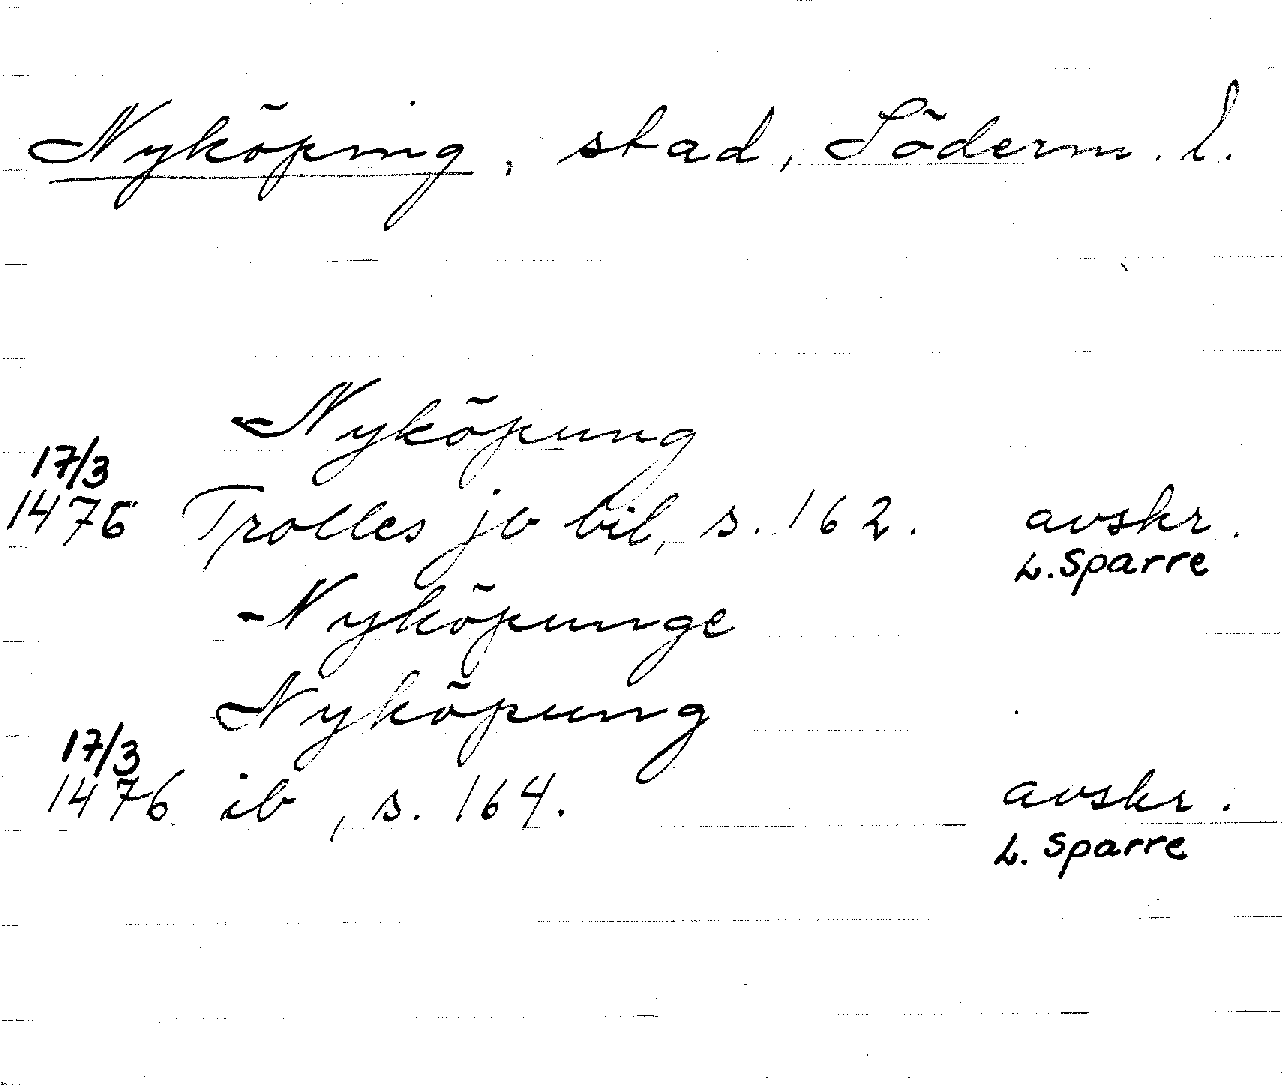 Nyköping, stad, Söderm. l.
Nyköpung
17/3
1476 Trolles jb bil, s. 162. avskr.
L. Sparre
Nyköpunge
Nyköpung
17/3
1476 ib, s. 164. avskr.
L. Sparre